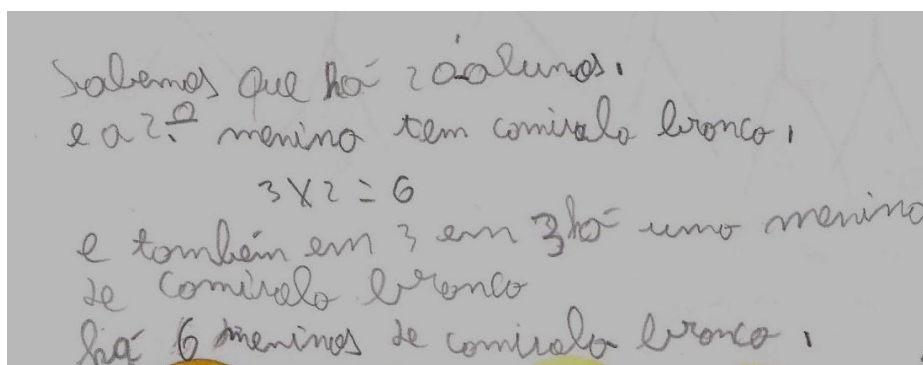 Sabemos que há 20 alunos.
e a 2.ª menina tem camisola branco,
3 X 2 = 6
e também em 3 em 3 há uma menina
de camisola branco
há 6 meninos de camisola branco,